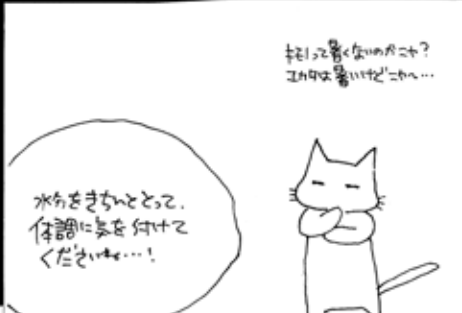 キモノって暑くないのかニャ?
ユカタは暑いけどニャ〜…
水分をきちんととって、
体調に気を付けて
くださいね…!